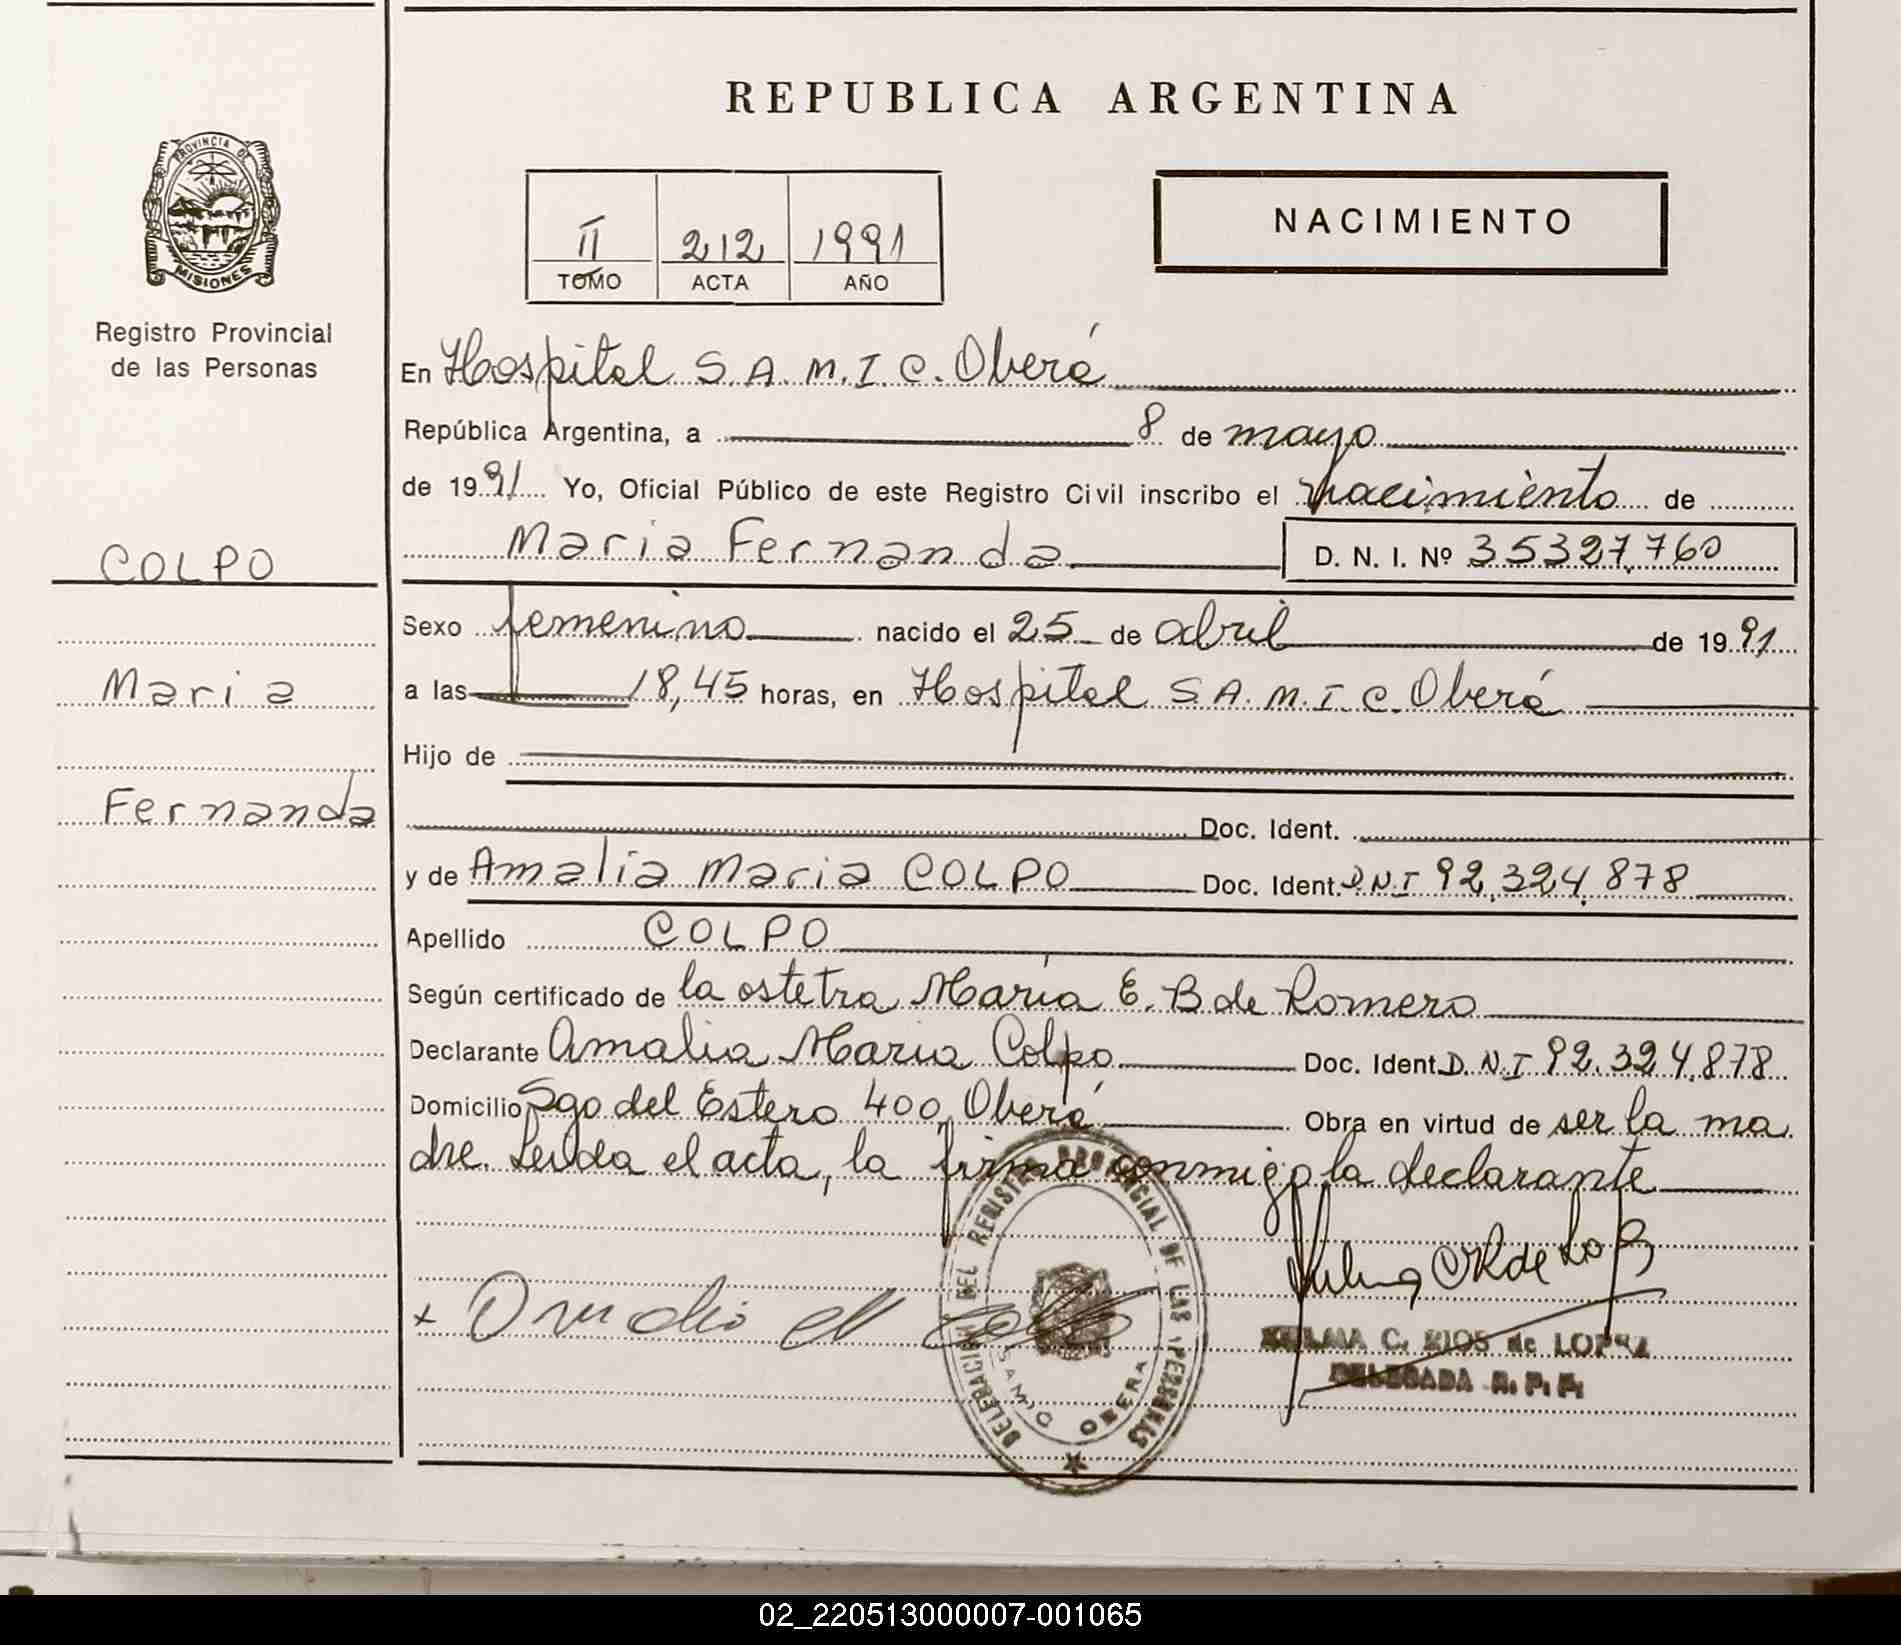 REPUBLICA ARGENTINA
PROVINCIA DE
MISIONES
Registro Provincial
de las Personas
II 212 1991
TOMO ACTA AÑO
NACIMIENTO
En Hospital S.A.M.I.C. Oberá
República Argentina, a 8 de mayo
de 1991 Yo, Oficial Público de este Registro Civil inscribo el nacimiento de
Maria Fernanda D. N. I. Nº 35327.760
COLPO
Maria
Fernanda
Sexo femenino nacido el 25 de abril de 1991
a las 18,45 horas, en Hospital S.A.M.I.C. Oberá
Hijo de
Doc. Ident.
y de Amalia Maria COLPO Doc. Ident. D.N.I 92.324.878
Apellido COLPO
Según certificado de la ostetra María E. B de Romero
Declarante Amalia Maria Colpo Doc. Ident. D.N.I 92.324.878
Domicilio Sgo del Estero 400, Oberá Obra en virtud de ser la ma
dre. Leída el acta, la firma conmigo la declarante
DELEGACION DEL REGISTRO PROVINCIAL DE LAS PERSONAS
SAMIC OBERA
ZULMA C. RIOS de LOPEZ
DELEGADA R. P. P.
02_220513000007-001065